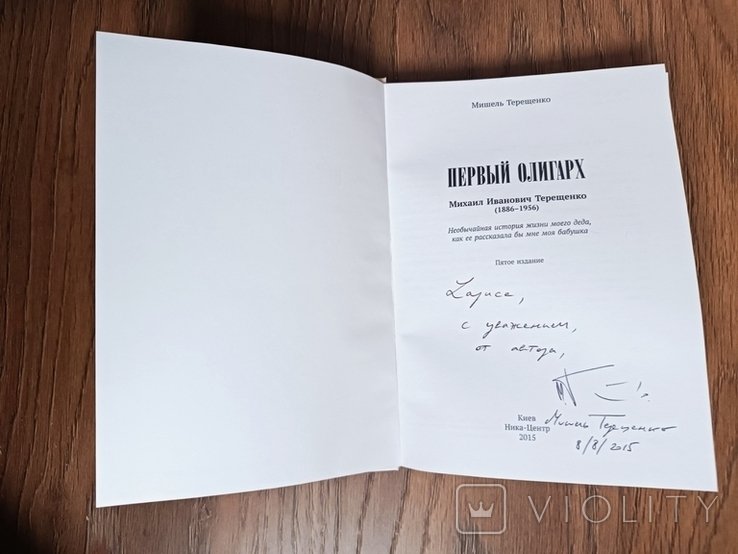 Мишель Терещенко
ПЕРВЫЙ ОЛИГАРХ
Михаил Иванович Терещенко
(1886–1956)
Необычайная история жизни моего деда,
как ее рассказала бы мне моя бабушка
Пятое издание
Ларисе,
с уважением,
от автора,
Киев
Ника-Центр
2015
Мишель Терещенко
8/8/2015
VIOLITY